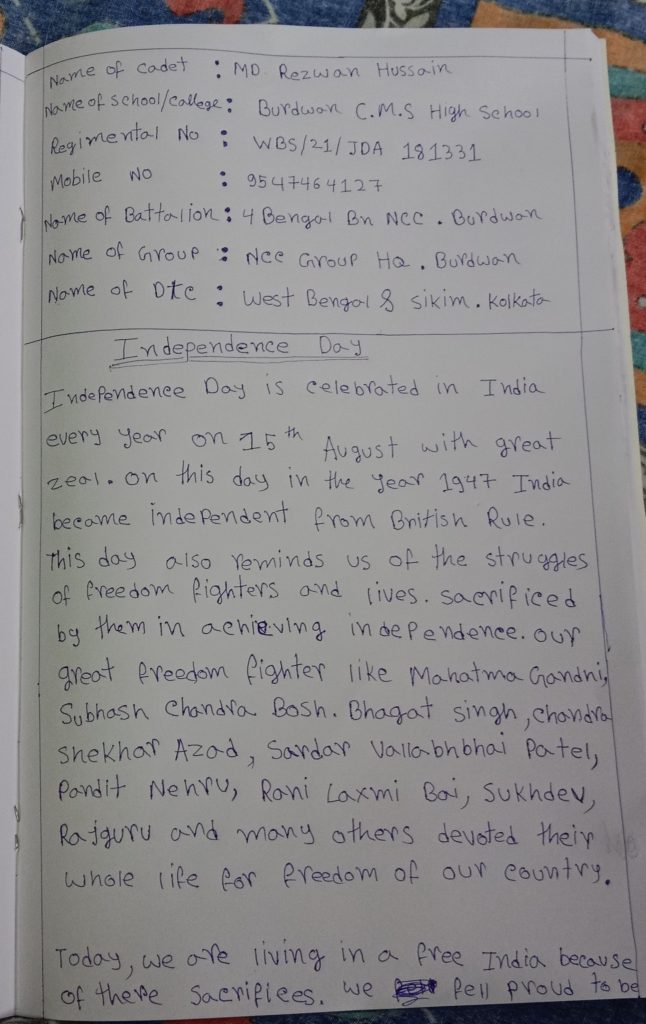 Name of Cadet : MD. Rezwan Hussain
Name of School/College : Burdwan C.M.S High School
Regimental No : WBS/21/JDA 181331
Mobile No : 9547464127
Name of Battalion : 4 Bengal Bn NCC . Burdwan
Name of Group : Ncc Group HQ . Burdwan
Name of Dte : West Bengal & Sikim . Kolkata
Independence Day
Independence Day is celebrated in India
every year on 15th August with great
zeal. On this day in the year 1947 India
became independent from British Rule.
This day also reminds us of the struggles
of freedom fighters and lives. sacrificed
by them in achieving independence. our
great freedom fighter like Mahatma Gandhi,
Subhash Chandra Bosh. Bhagat singh, Chandra
Shekhar Azad, Sardar Vallabhbhai Patel,
Pandit Nehru, Rani Laxmi Bai, Sukhdev,
Rajguru and many others devoted their
whole life for freedom of our country.
Today, we are living in a free India because
of there sacrifices. we fell proud to be